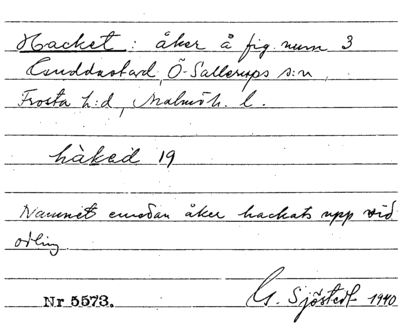 Hacket: åker å fig. num 3
Ö. Sallerups s:n,
Frosta h:d, Malmöh. l.
håked 19
Namnet emedan åker hackats upp vid
odling.
Nr 5573. G. Sjöstedt 1940